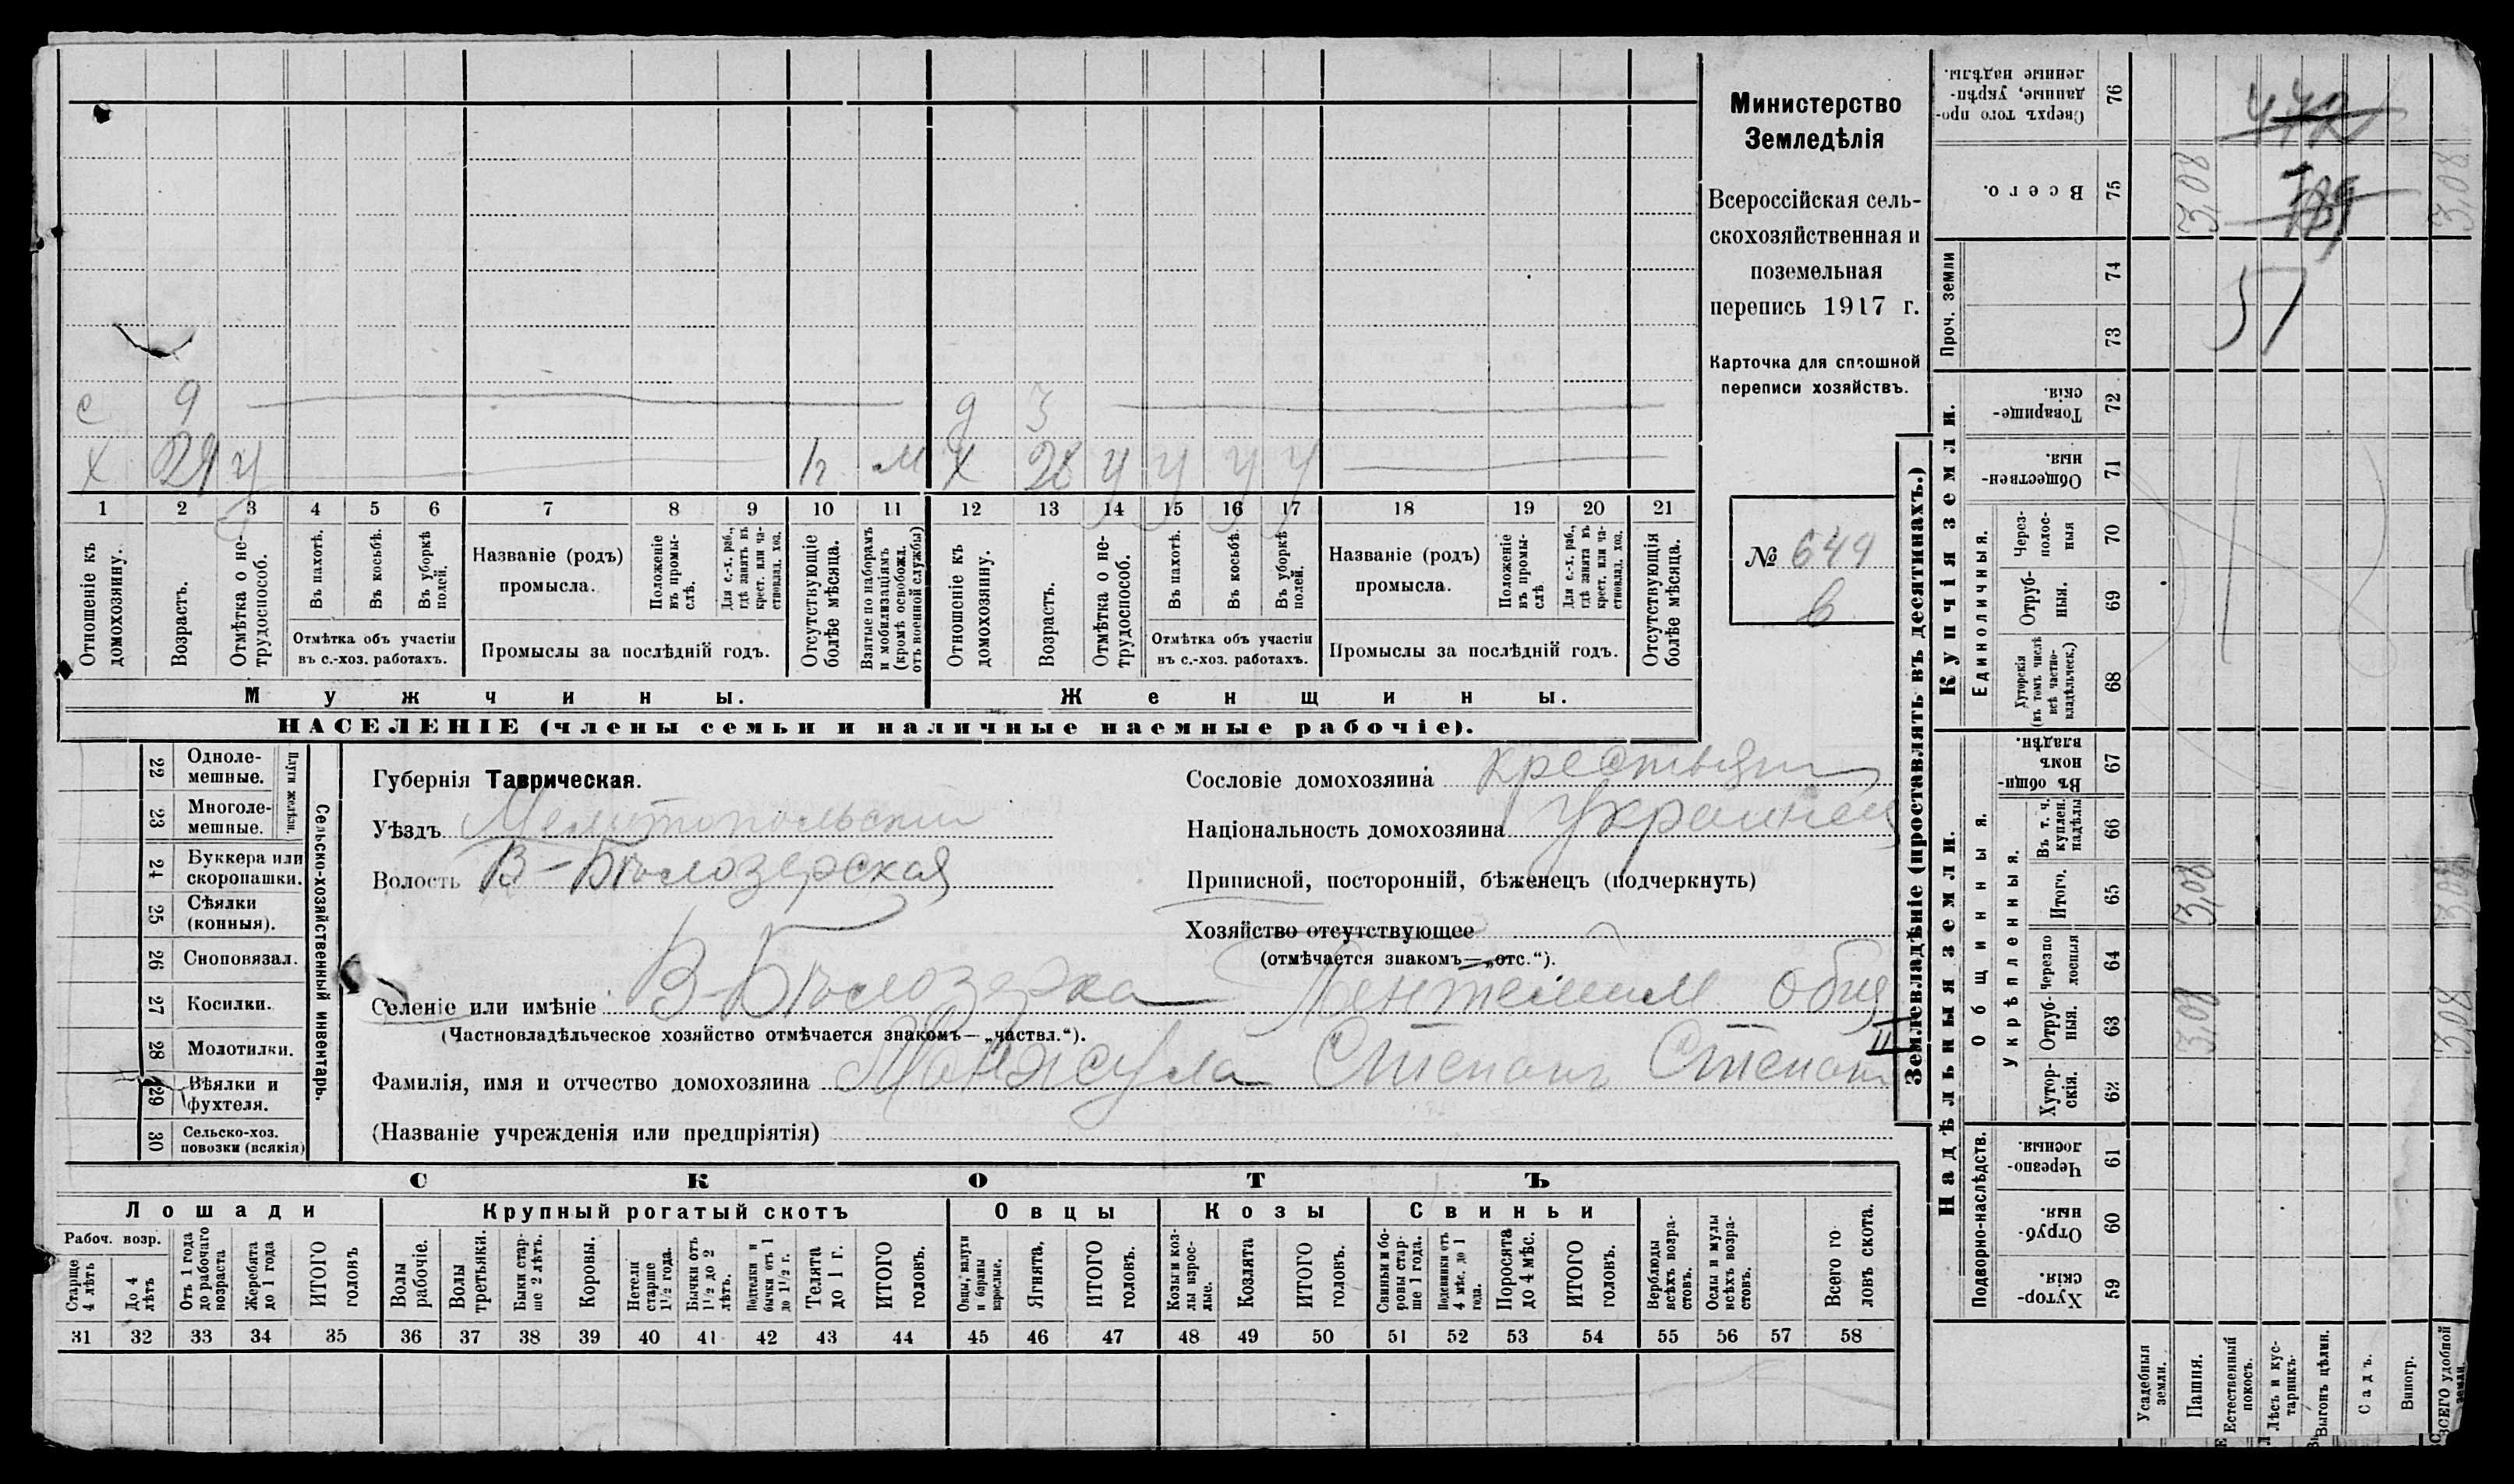 Министерство
Земледѣлія
Всероссійская сель-
скохозяйственная и
поземельная
перепись 1917 г.
Карточка для сплошной
переписи хозяйствъ.
№ 649
в
с 9 д 3
х 29 у х 26 у у у у
1 2 3 4 5 6 7 8 9 10 11 12 13 14 15 16 17 18 19 20 21
Отношеніе къ домохозяину.
Возрастъ.
Отмѣтка о не-трудоспособ.
Въ пахотѣ.
Въ косьбѣ.
Въ уборкѣ полей.
Отмѣтка объ участіи въ с.-хоз. работахъ.
Названіе (родъ) промысла.
Положеніе въ промы-слѣ.
Для с.-х. раб., гдѣ занятъ въ крест. или ча-стновлад. хоз.
Промыслы за послѣдній годъ.
Отсутствующіе болѣе мѣсяца.
Взятые по наборамъ и мобилизаціямъ (кромѣ освобожд. отъ военной службы)
Отношеніе къ домохозяину.
Возрастъ.
Отмѣтка о не-трудоспособ.
Въ пахотѣ.
Въ косьбѣ.
Въ уборкѣ полей.
Отмѣтка объ участіи въ с.-хоз. работахъ.
Названіе (родъ) промысла.
Положеніе въ промы-слѣ
Для с.-х. раб., гдѣ занятъ въ крест. или ча-стновлад. хоз.
Промыслы за послѣдній годъ.
Отсутствующія болѣе мѣсяца.
Мужчины. Женщины.
НАСЕЛЕНІЕ (члены семьи и наличные наемные рабочіе).
22 Одноле-мешные.
23 Многоле-мешные.
Плуги желѣзн.
24 Буккера или скоропашки.
25 Сѣялки (конныя).
26 Сноповязал.
27 Косилки.
28 Молотилки.
29 Вѣялки и фухтеля.
30 Сельско-хоз. повозки (всякія)
Сельско-хозяйственный инвентарь.
Губернія Таврическая.
Уѣздъ Мелитопольскій
Волость В-Бѣлозерская
Сословіе домохозяина крестьян
Національность домохозяина Украинец
Приписной, посторонній, бѣженецъ (подчеркнуть)
Хозяйство отсутствующее
(отмѣчается знакомъ—„отс.“).
Селеніе или имѣніе В-Бѣлозерка
(Частновладѣльческое хозяйство отмѣчается знакомъ—„частвл.“).
Фамилія, имя и отчество домохозяина Манжула Степанъ Степан
(Названіе учрежденія или предпріятія)
СКОТЪ
Лошади Крупный рогатый скотъ Овцы Козы Свиньи
Рабоч. возр.
Старше 4 лѣтъ
До 4 лѣтъ
Отъ 1 года до рабочаго возраста
Жеребята до 1 года
ИТОГО головъ
Волы рабочіе.
Волы третьяки.
Быки стар-ше 2 лѣтъ.
Коровы.
Нетели старше 1½ года.
Бычки отъ 1½ до 2 лѣтъ.
Подтелки и бычки отъ 1 до 1½ г.
Телята до 1 г.
ИТОГО головъ.
Овцы, валухи и бараны взрослые.
Ягнята.
ИТОГО головъ.
Козы и коз-лы взрос-лые.
Козлята
ИТОГО головъ.
Свиньи и бо-ровы стар-ше 1 года.
Подсвинки отъ 4 мѣс. до 1 года.
Поросята до 4 мѣс.
ИТОГО головъ.
Верблюды всѣхъ возра-стовъ.
Ослы и мулы всѣхъ возра-стовъ.
Всего го-ловъ скота.
31 32 33 34 35 36 37 38 39 40 41 42 43 44 45 46 47 48 49 50 51 52 53 54 55 56 57 58
Землевладѣніе (проставлять въ десятинахъ.)
Надѣльныя земли.
Купчія земли.
Подворно-наслѣдств.
Общинныя.
Укрѣпленныя.
Единоличныя.
Проч. земли
Сверхъ того про-данные, укрѣп-ленные надѣлы. 76
Всего. 75 3,08 3,08
74
73
57
Товарище-скія. 72
Обществен-ныя. 71
Через-полос-ныя 70
Отруб-ныя. 69
Хуторскія (въ томъ числѣ всѣ частно-владѣльческ.) 68
Въ общи-номъ владѣн. 67
Въ т. ч. куплен. надѣлы 66
Итого. 65 3,08 3,08
Черезпо лосныя 64
Отруб-ныя. 63 3,08 3,08
Хутор-скія. 62
Черезпо-лосныя. 61
Отруб-ныя. 60
Хутор-скія. 59
Усадебныя земли.
Пашня.
Естественный покосъ.
Лѣсъ и кус-тарникъ.
Выгонъ цѣлин.
Садъ.
Виногр.
ВСЕГО удобной земли.